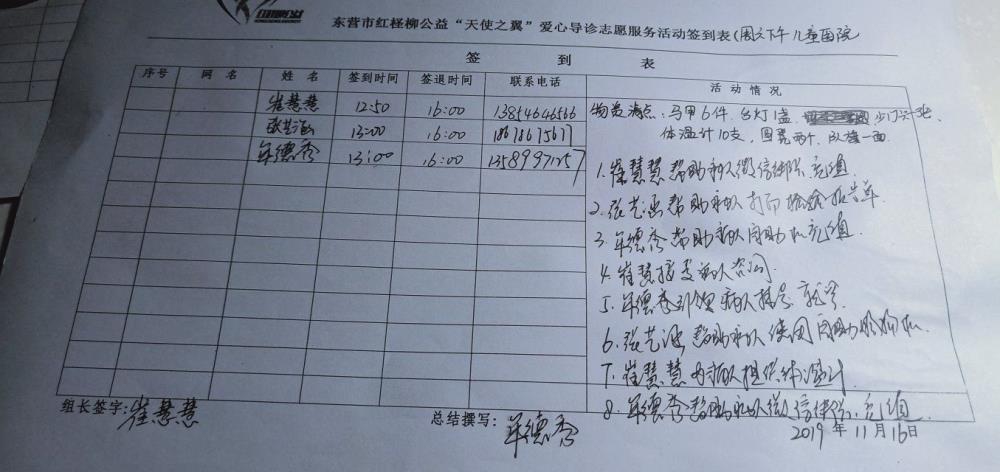 东营市红柽柳公益“天使之翼”爱心导诊志愿服务活动签到表(周六下午儿童医院
签 到 表
序号 网 名 姓 名 签到时间 签退时间 联系电话 活 动 情 况
崔慧慧 12:50 16:00 13854646566
13:00 16:00
牟德香 13:00 16:00 13589971257
物资清点:马甲6件,台灯1盏,
体温计10支,
1.崔慧慧帮助病人微信绑卡、充值
2.张艺 帮助病人打印检验报告单
3.牟德香帮助病人自助机充值
4.崔慧接受病人咨询
5.牟德香引领病人挂号
6.张艺 帮助病人使用自助购物机
7.崔慧慧为病人提供体温计
8.牟德香帮助病人微信绑卡、充值
组长签字:崔慧慧 总结撰写:牟德香
2019年11月16日